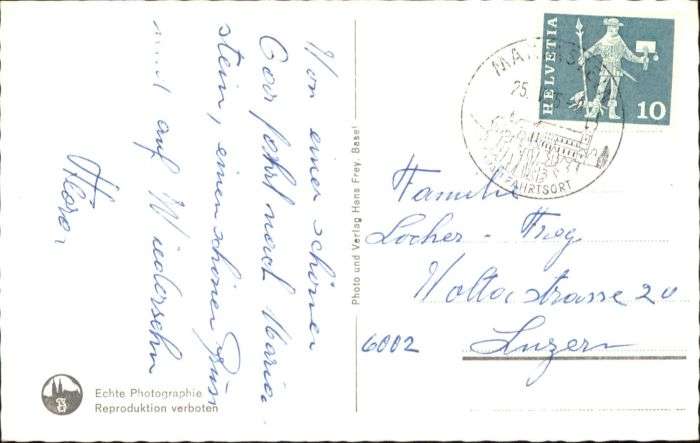 Von einer schönen
Carfahrt nach Maria-
stein, einen schönen Gruss
und auf Wiedersehn
Flora
Echte Photographie
Reproduktion verboten
Photo und Verlag Hans Frey, Basel
HELVETIA
10
25.
WALLFAHRTSORT
Familie
Locher - Frey
Voltastrasse 20
6002 Luzern